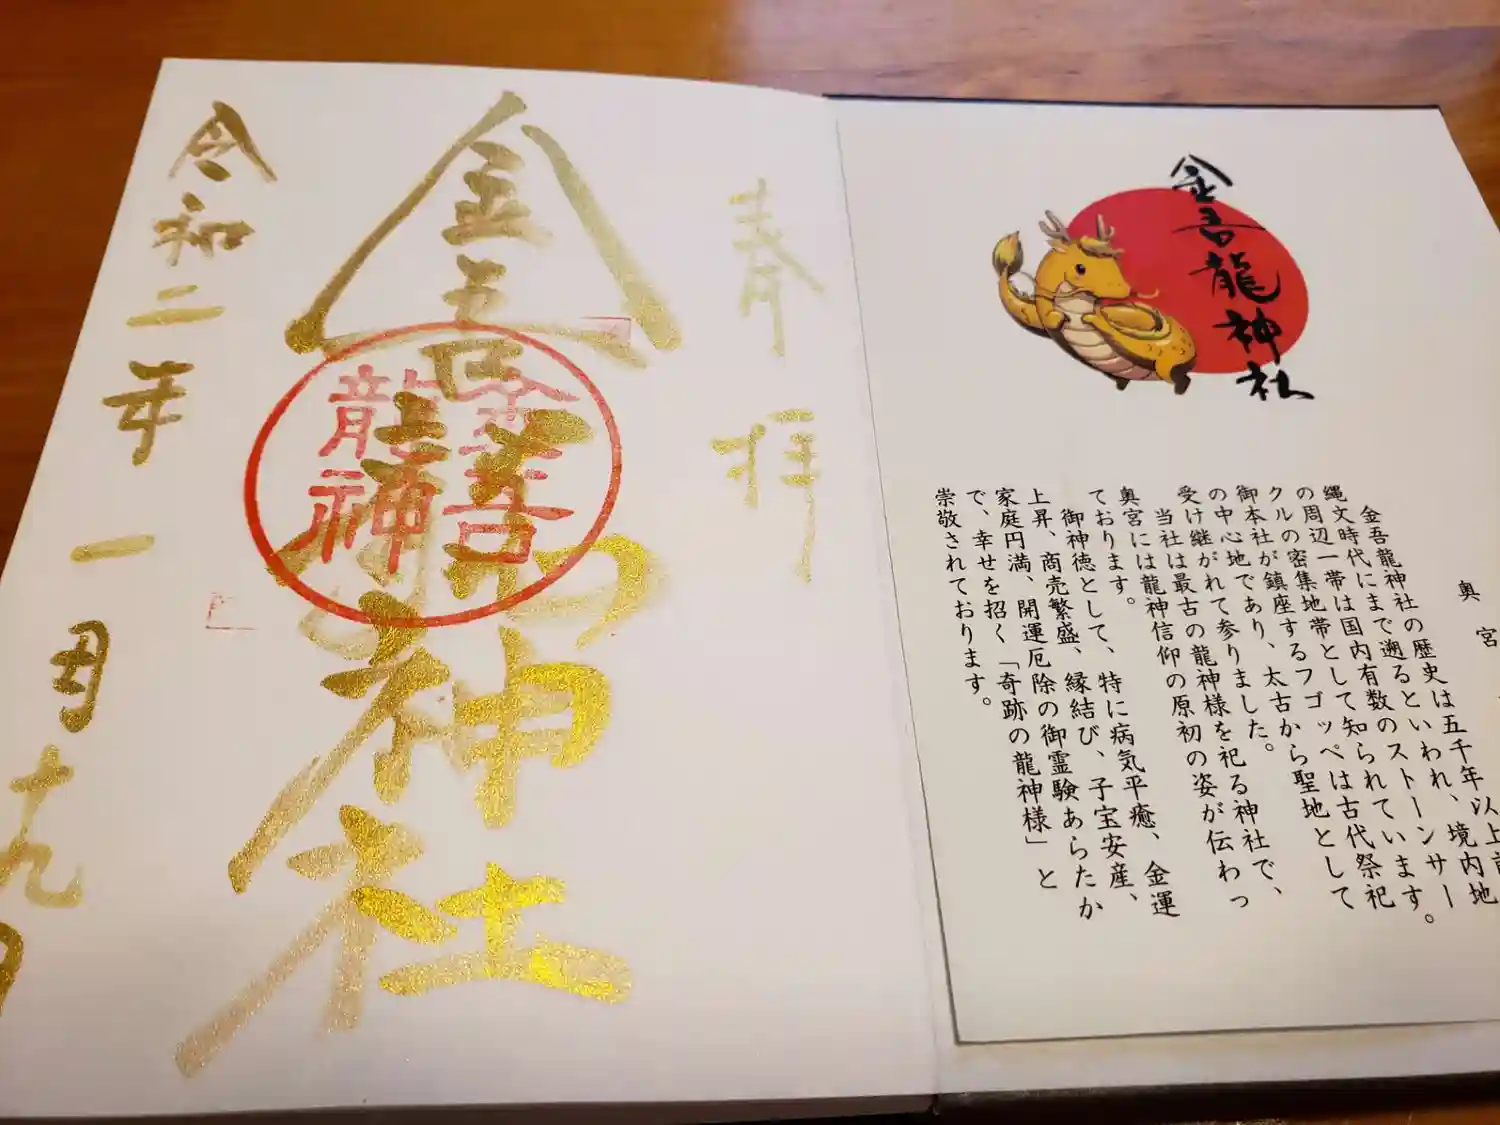 金吾龍神社
奥宮
金吾龍神社の歴史は五千年以上前
縄文時代にまで遡るといわれ、境内地
の周辺一帯は国内有数のストーンサー
クルの密集地帯として知られています。
御本社が鎮座するフゴッペは古代祭祀
の中心地であり、太古から聖地として
受け継がれて参りました。
当社は最古の龍神様を祀る神社で、
奥宮には龍神信仰の原初の姿が伝わっ
ております。
御神徳として、特に病気平癒、金運
上昇、商売繁盛、縁結び、子宝安産、
家庭円満、開運厄除の御霊験あらたか
で、幸せを招く「奇跡の龍神様」と
崇敬されております。
奉拝
金吾龍神社
金吾
龍神
令和二年一月十九日